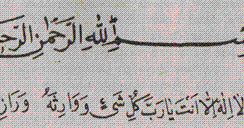 بسم الله الرحمن الرحيم
لا اله الا انت يا رب كل شئ و وارثه